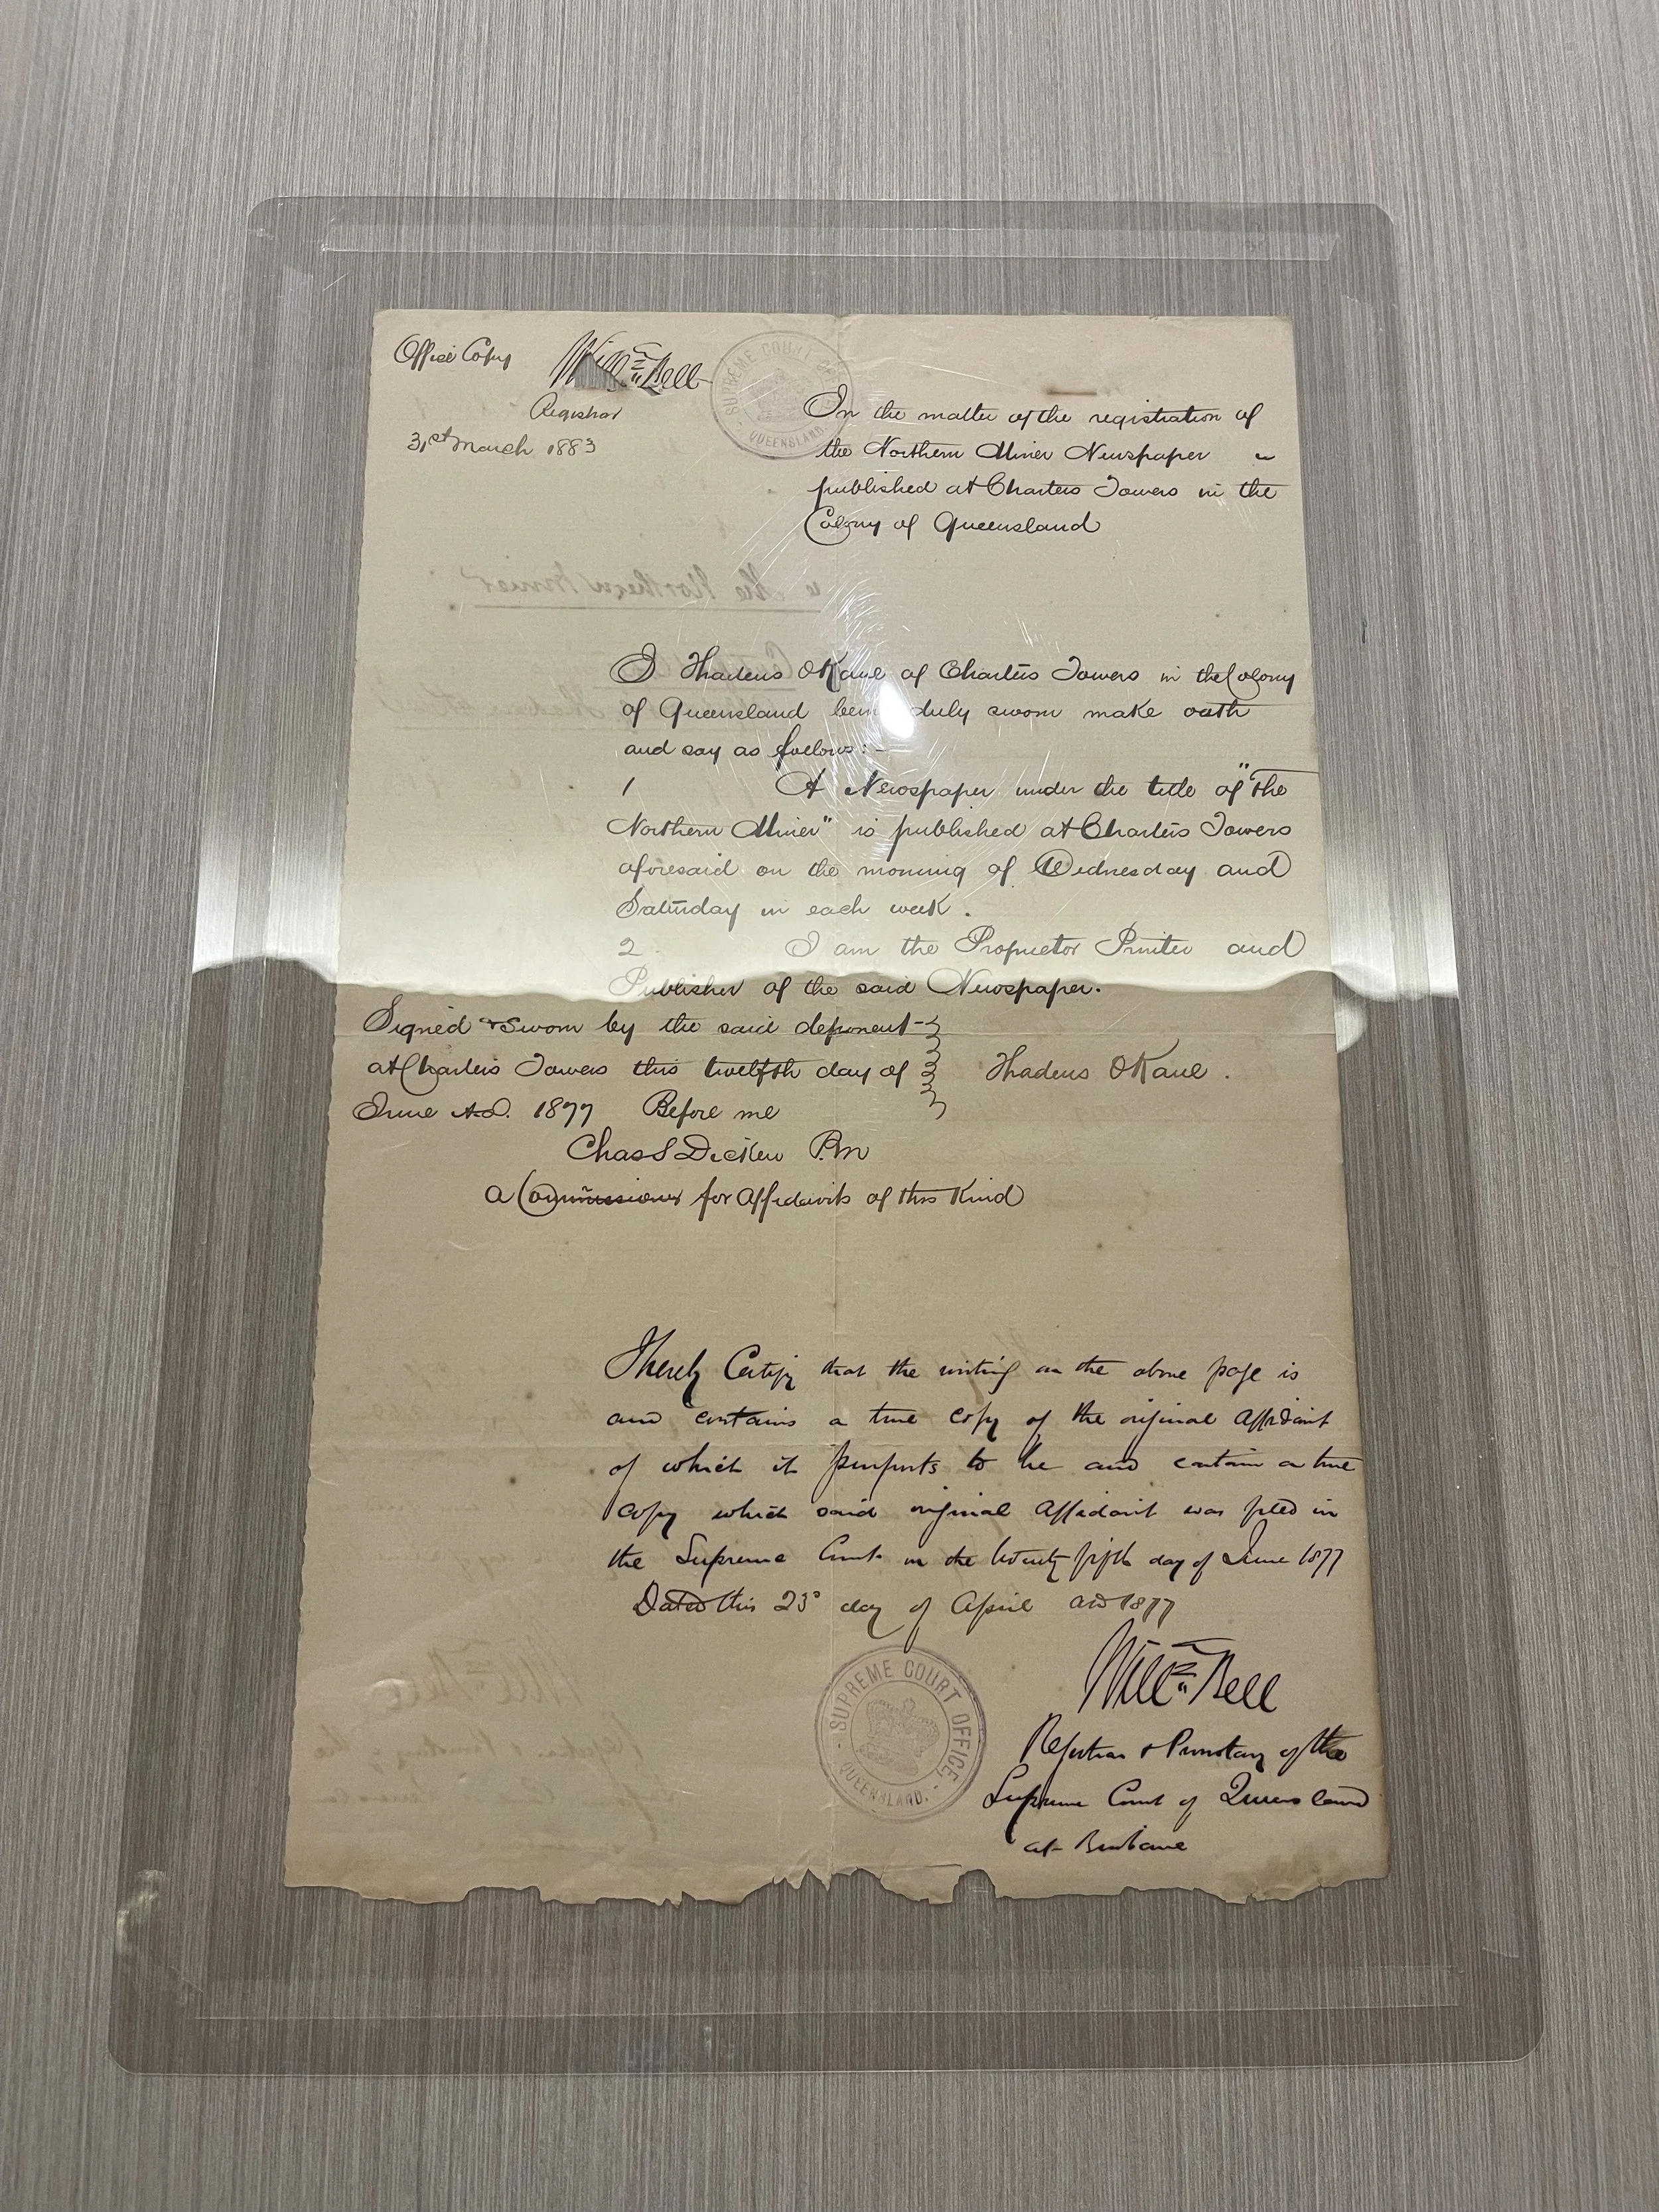 Office Copy
Willm Bell
Registrar
31st March 1883
SUPREME COURT OF
QUEENSLAND.
In the matter of the registration of
the Northern Miner Newspaper
published at Charters Towers in the
Colony of Queensland
I Thadeus OKane of Charters Towers in the Colony
of Queensland being duly sworn make oath
and say as follows:-
1 A Newspaper under the title of "The
Northern Miner" is published at Charters Towers
aforesaid on the morning of Wednesday and
Saturday in each week.
2 I am the Proprietor Printer and
Publisher of the said Newspaper.
Signed & Sworn by the said deponent
at Charters Towers this twelfth day of
June A.D. 1877 Before me
Thadeus OKane.
Chas S Dicken P.M
a Commissioner for Affidavits of this Kind
I hereby Certify that the writing on the above page is
and contains a true copy of the original Affidavit
of which it purports to be and contain a true
copy which said original Affidavit was filed in
the Supreme Court on the twenty fifth day of June 1877
Dated this 23d day of April AD 1877
Willm Bell
SUPREME COURT OFFICE
QUEENSLAND.
Registrar & Prothonotary of the
Supreme Court of Queensland
at Brisbane